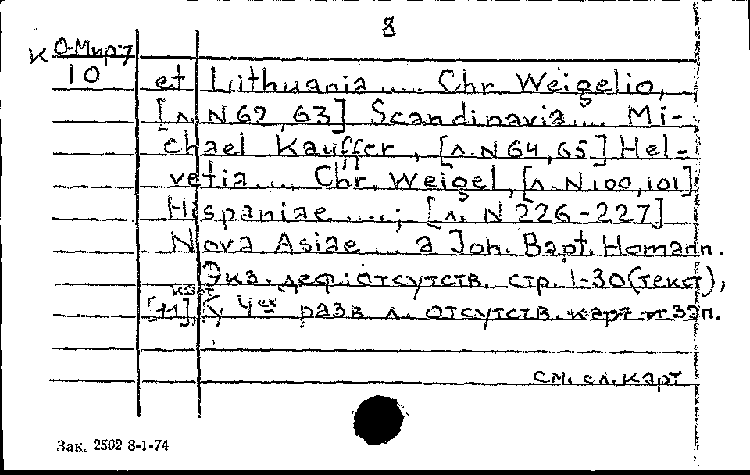 8
К О-Мир-7
10 et Lithuania .... Chr. Weigelio,
[л. N 62, 63] Scandinavia.... Mi-
chael Kauffer, [л. N 64, 65] Hel-
vetia.... Chr. Weigel, [л. N 100, 101]
Hispaniae ....; [л. N 226-227]
Nova Asiae ... a Joh. Bapt. Homann.
Экз. деф.: отсутств. стр. 1-30 (текст),
у 4ех разв. л. отсутств. карт и зап.
см. сл. карт
Зак. 2502 8-1-74